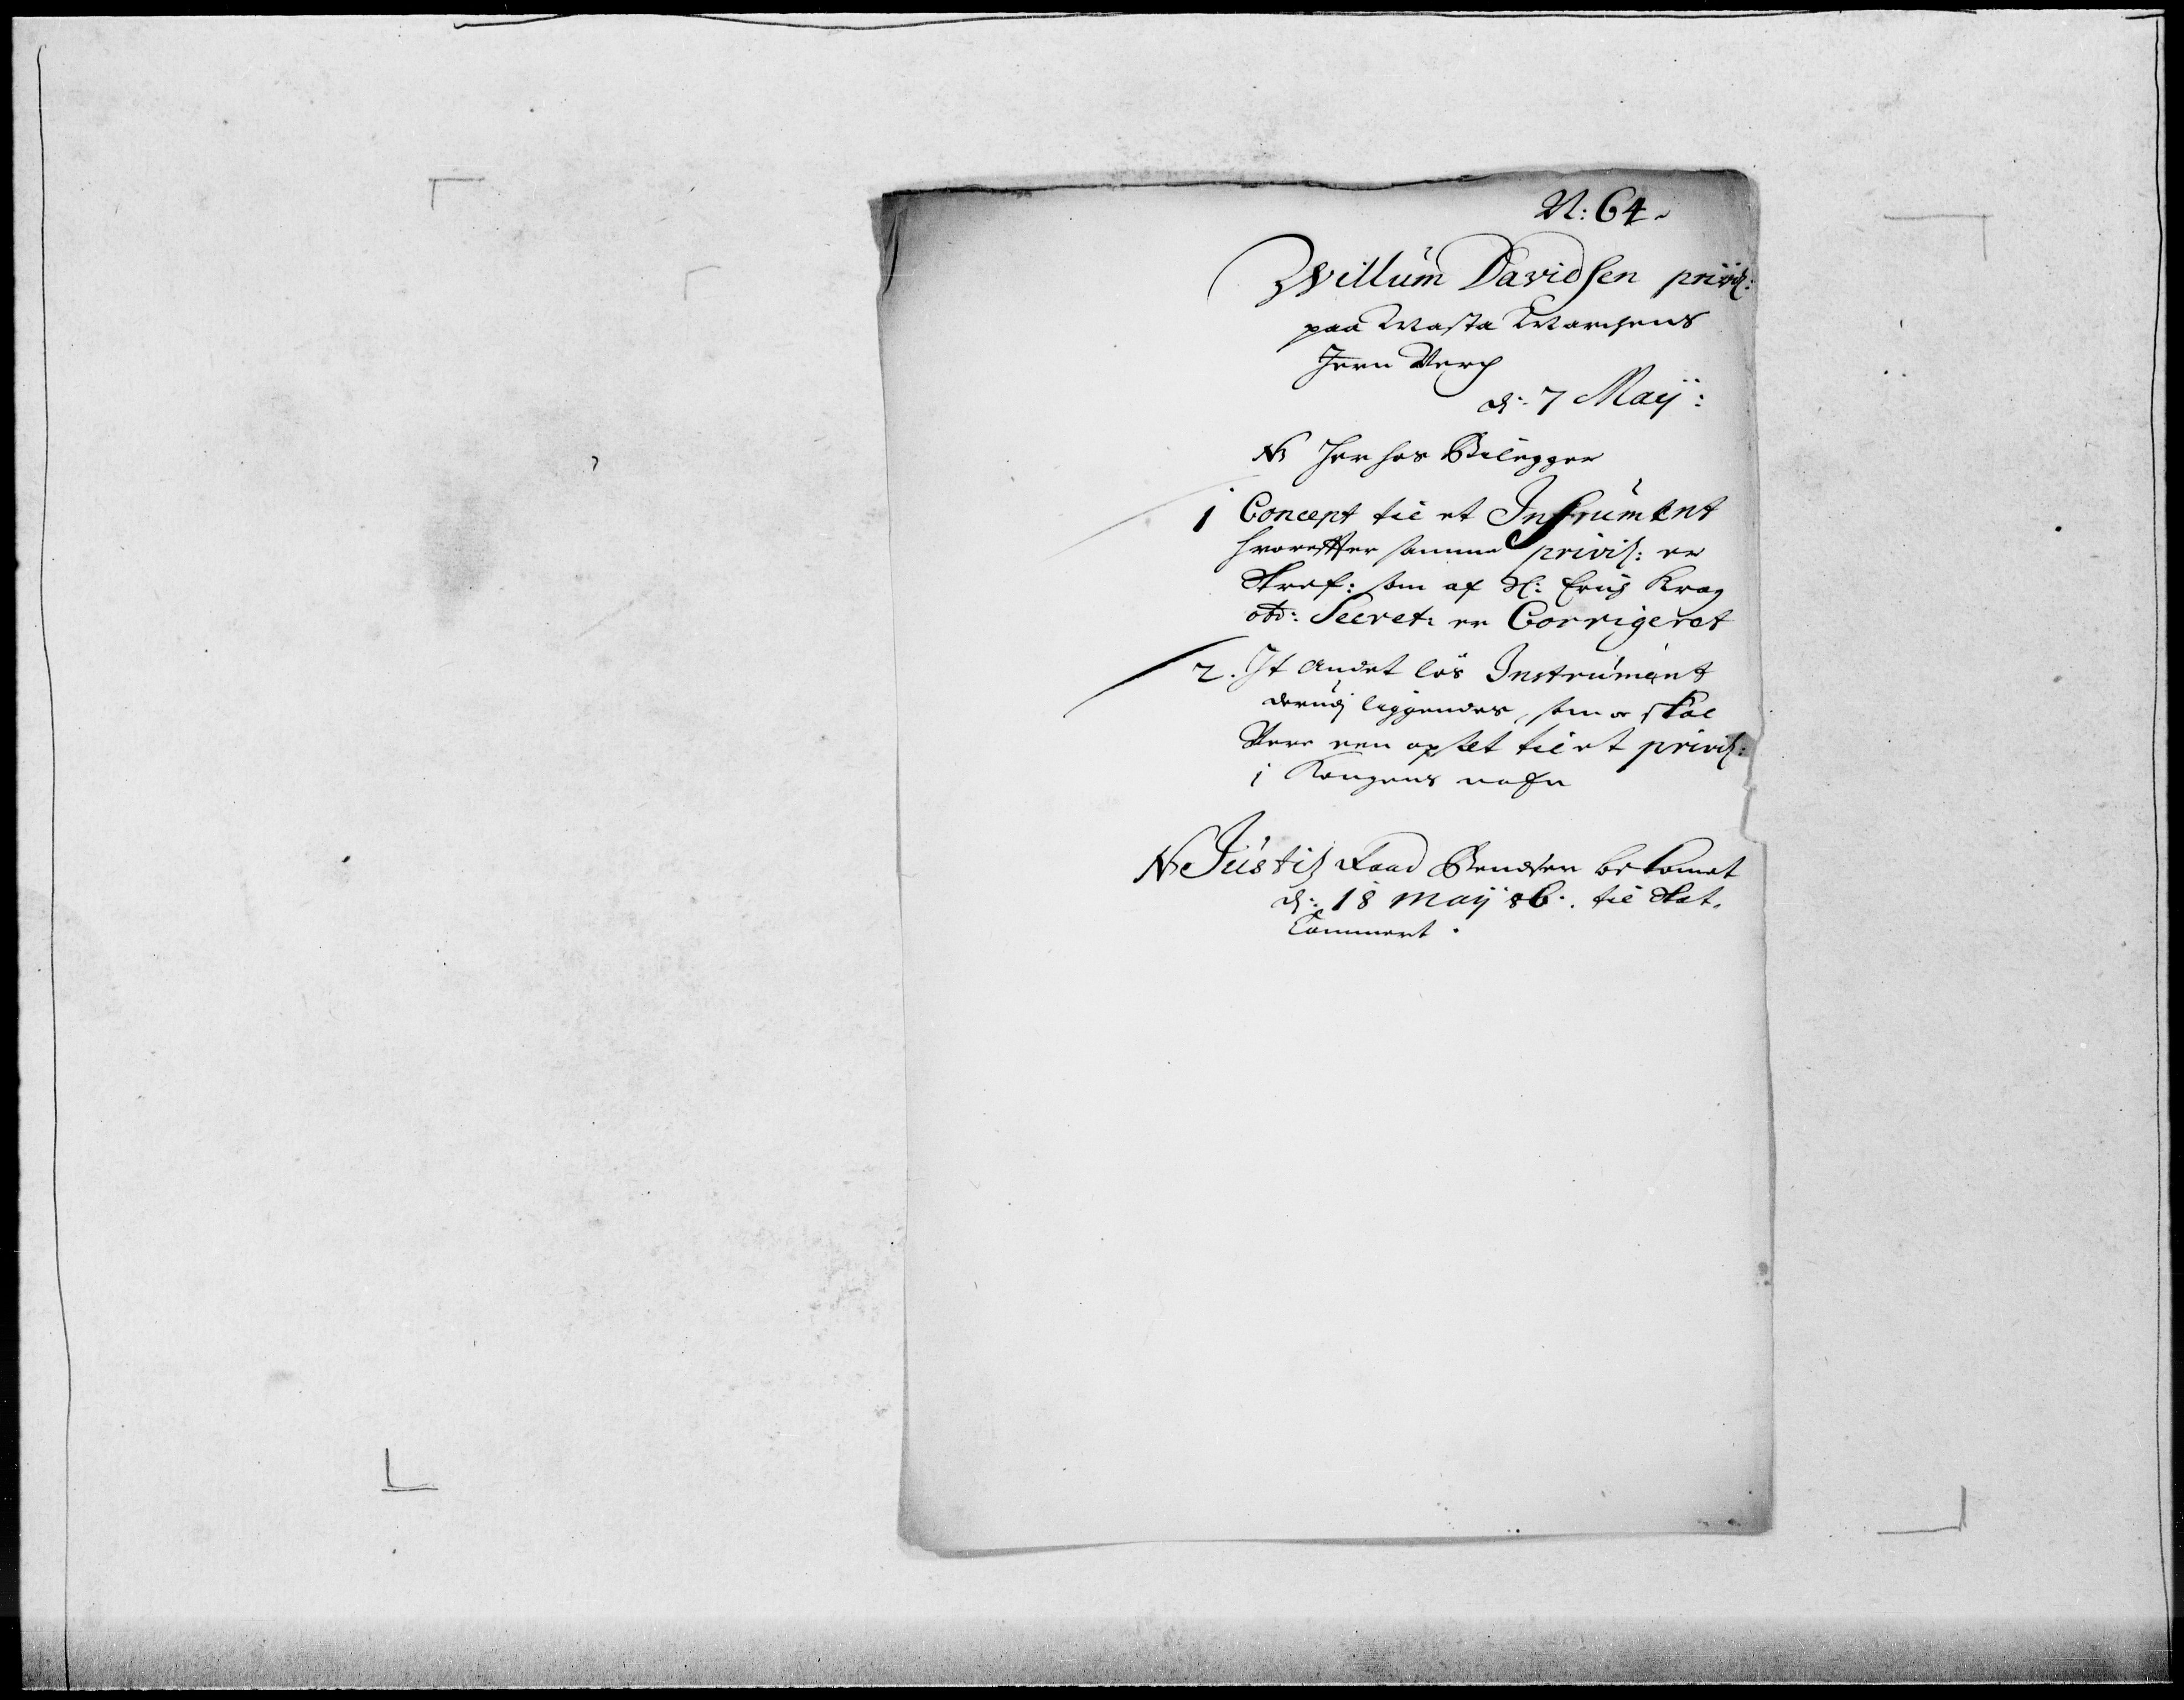 N: 64.
Willum Davidsen privil:
paa
Jern Verch
d: 7 Maij:
NB Her hos Bilegger
1 Concept til et Instrument
hvorefter samme privil: er
Skref: som af Sl: Erich Krag
obr: Secret: er Corrigeret
2. It Andet løs Instrument
derudj liggendes, som oc skal
Vere een opset til et privil:
i Kongens nafn
NB Justitz Raad Bendsen bekomet
d: 18 Maij 86. til Skat-
Cammert.